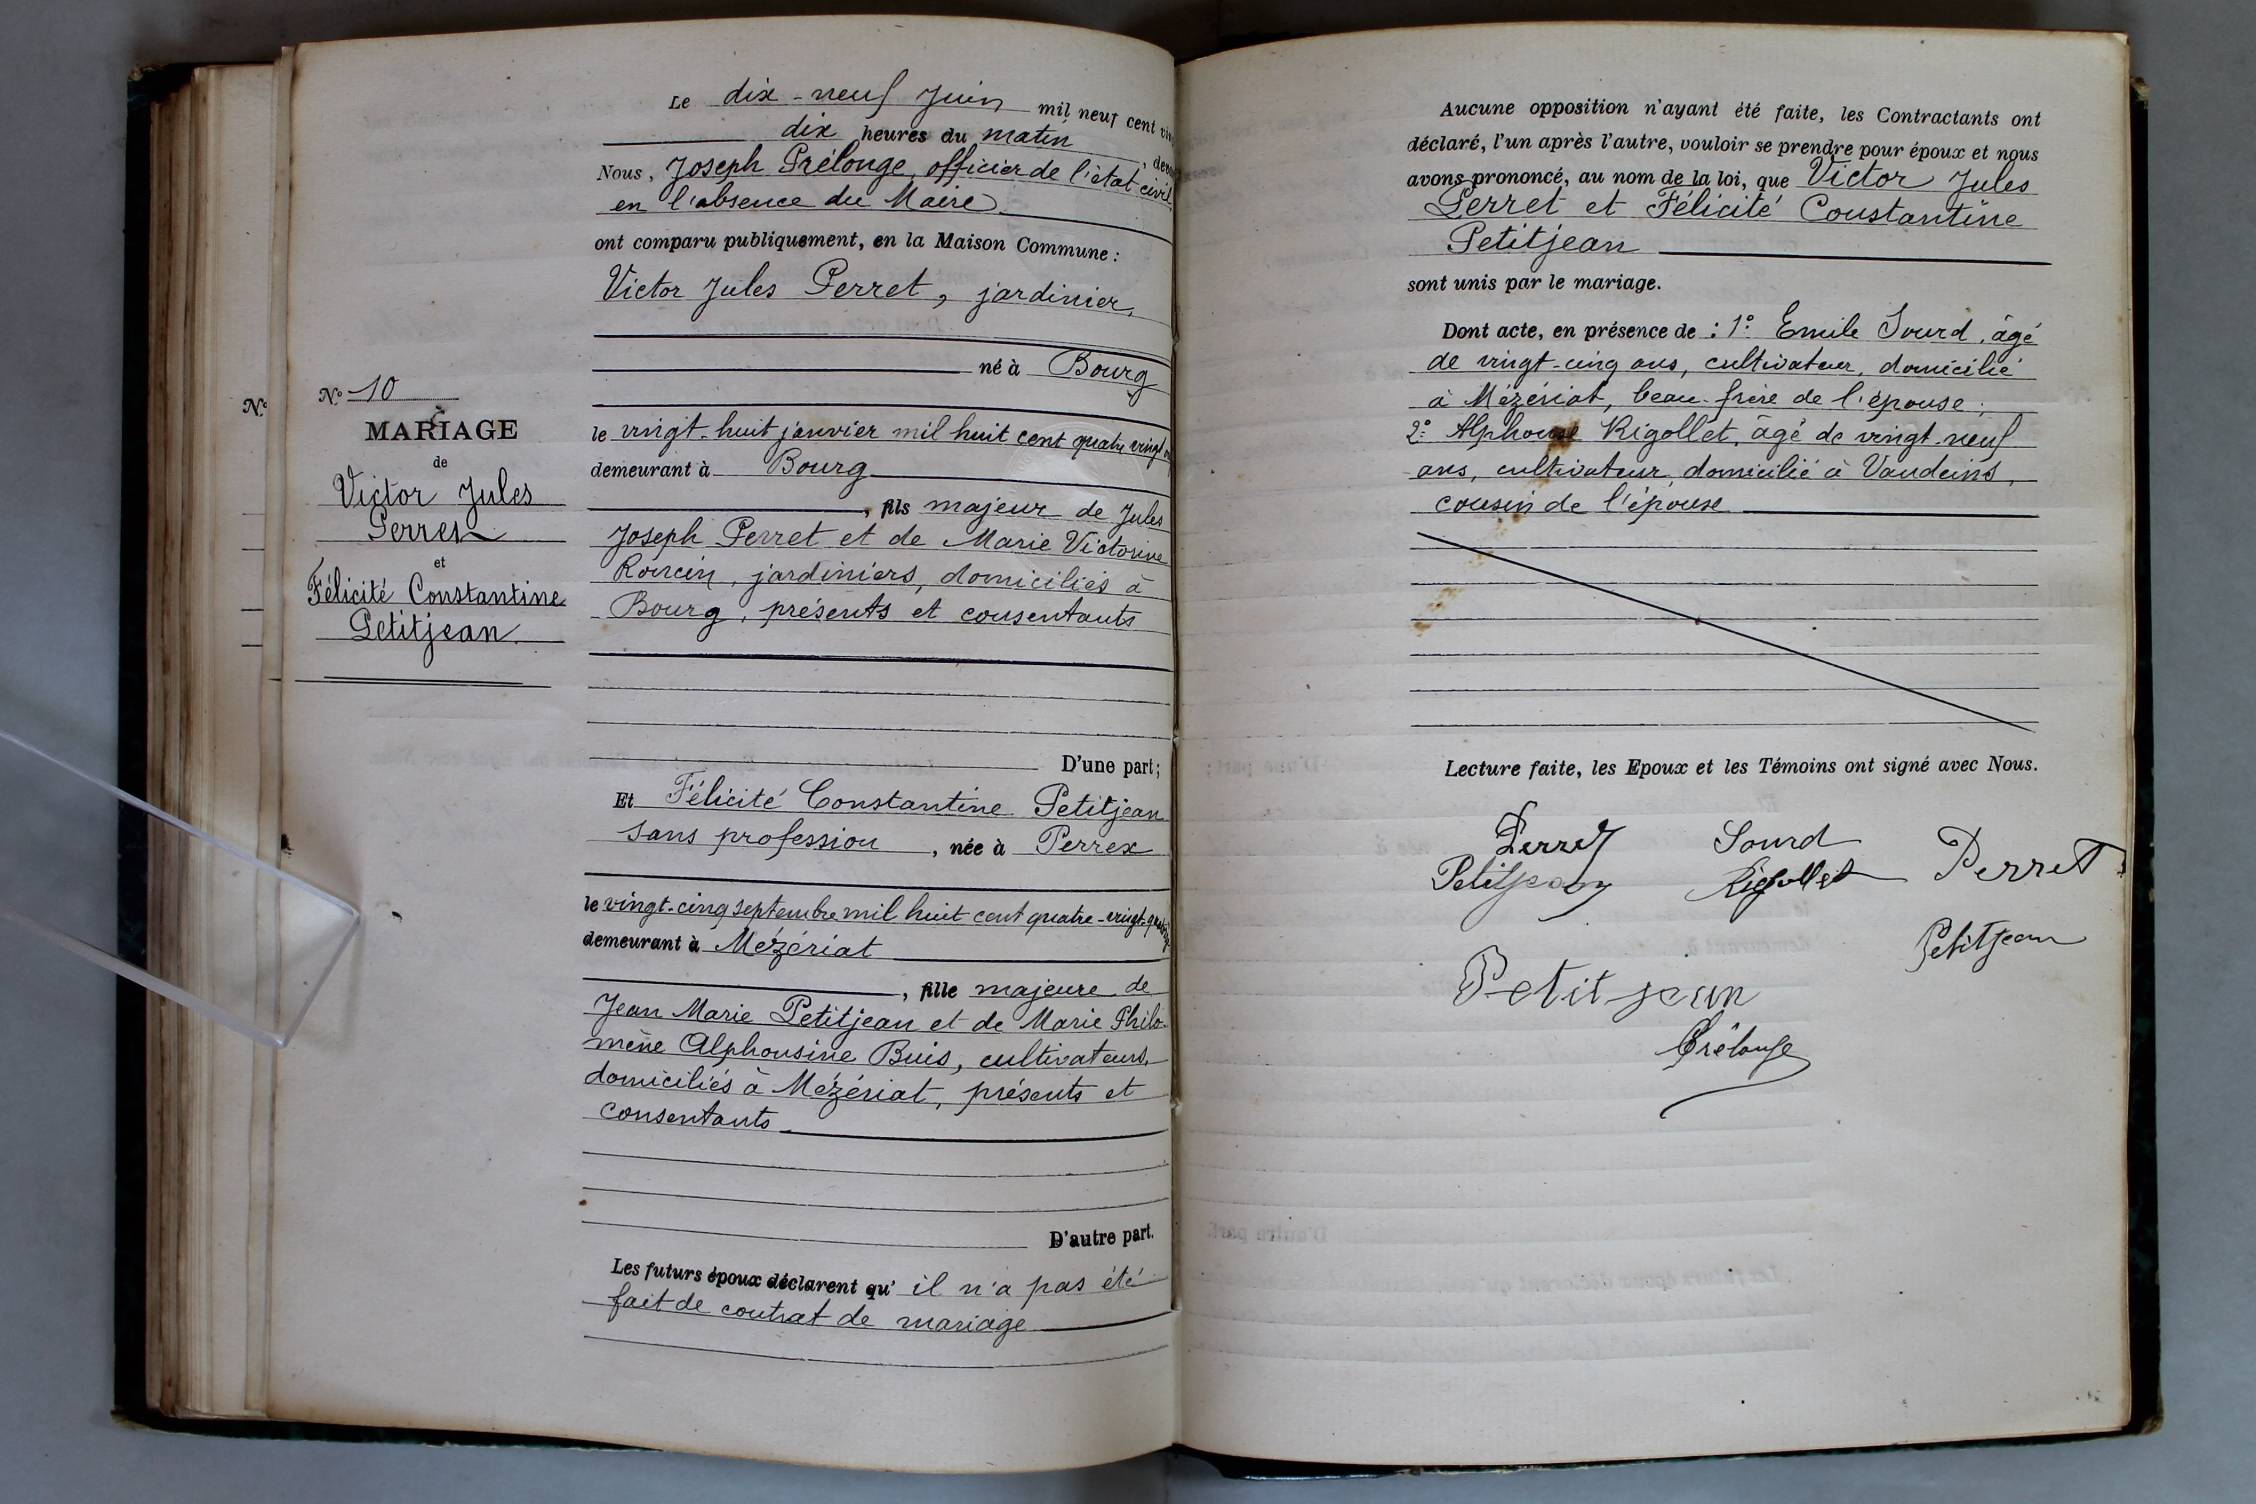 Nº
Nº 10
MARIAGE
de
Victor Jules
Perret
et
Félicité Constantine
Petitjean
Le dix-neuf Juin mil neuf cent
dix heures du matin
Nous, Joseph Prélonge, officier de l'état civil
en l'absence du Maire
ont comparu publiquement, en la Maison Commune :
Victor Jules Perret, jardinier,
né à Bourg
le vingt-huit janvier mil huit cent quatre vingt
demeurant à Bourg
, fils majeur de Jules
Joseph Perret et de Marie Victorine
jardiniers, domiciliés à
Bourg, présents et consentants
D'une part;
Et Félicité Constantine Petitjean
sans profession, née à Perrex
le vingt-cinq septembre mil huit cent quatre-vingt-
demeurant à Mézériat
, fille majeure de
Jean Marie Petitjean et de Marie Philo-
mène Alphonsine Buis, cultivateurs,
domiciliés à Mézériat, présents et
consentants
D'autre part.
Les futurs époux déclarent qu' il n'a pas été
fait de contrat de mariage
Aucune opposition n'ayant été faite, les Contractants ont
déclaré, l'un après l'autre, vouloir se prendre pour époux et nous
avons prononcé, au nom de la loi, que Victor Jules
Perret et Félicité Constantine
Petitjean
sont unis par le mariage.
Dont acte, en présence de : 1º Emile Sourd, âgé
de vingt-cinq ans, cultivateur, domicilié
à Mézériat, beau-frère de l'épouse ;
2º Alphonse Rigollet, âgé de vingt-neuf
ans, cultivateur, domicilié à Vandeins,
cousin de l'épouse
Lecture faite, les Epoux et les Témoins ont signé avec Nous.
Perret Sourd Perret
Petitjean Rigollet
Petitjean
Petitjean
Prélonge